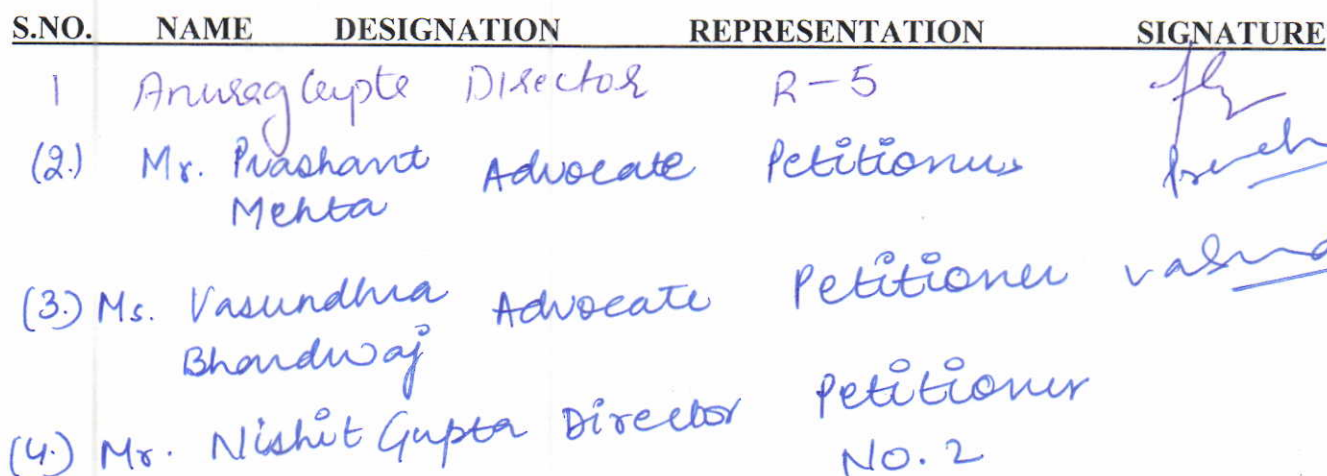 S.NO. NAME DESIGNATION REPRESENTATION SIGNATURE
1 Anurag Gupta Director R-5
(2.) Mr. Prashant Advocate Petitioner
Mehta
(3.) Ms. Vasundhra Advocate Petitioner
Bhardwaj
(4.) Mr. Nishit Gupta Director Petitioner
No. 2